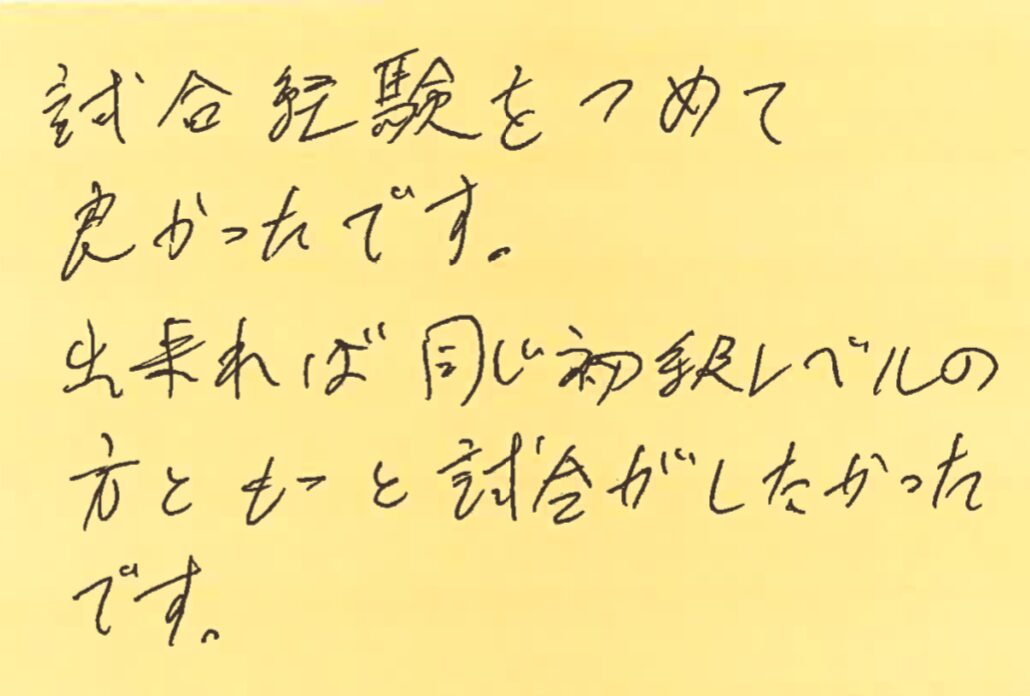 試合経験をつめて
良かったです。
出来れば同じ初級レベルの
方ともっと試合がしたかった
です。